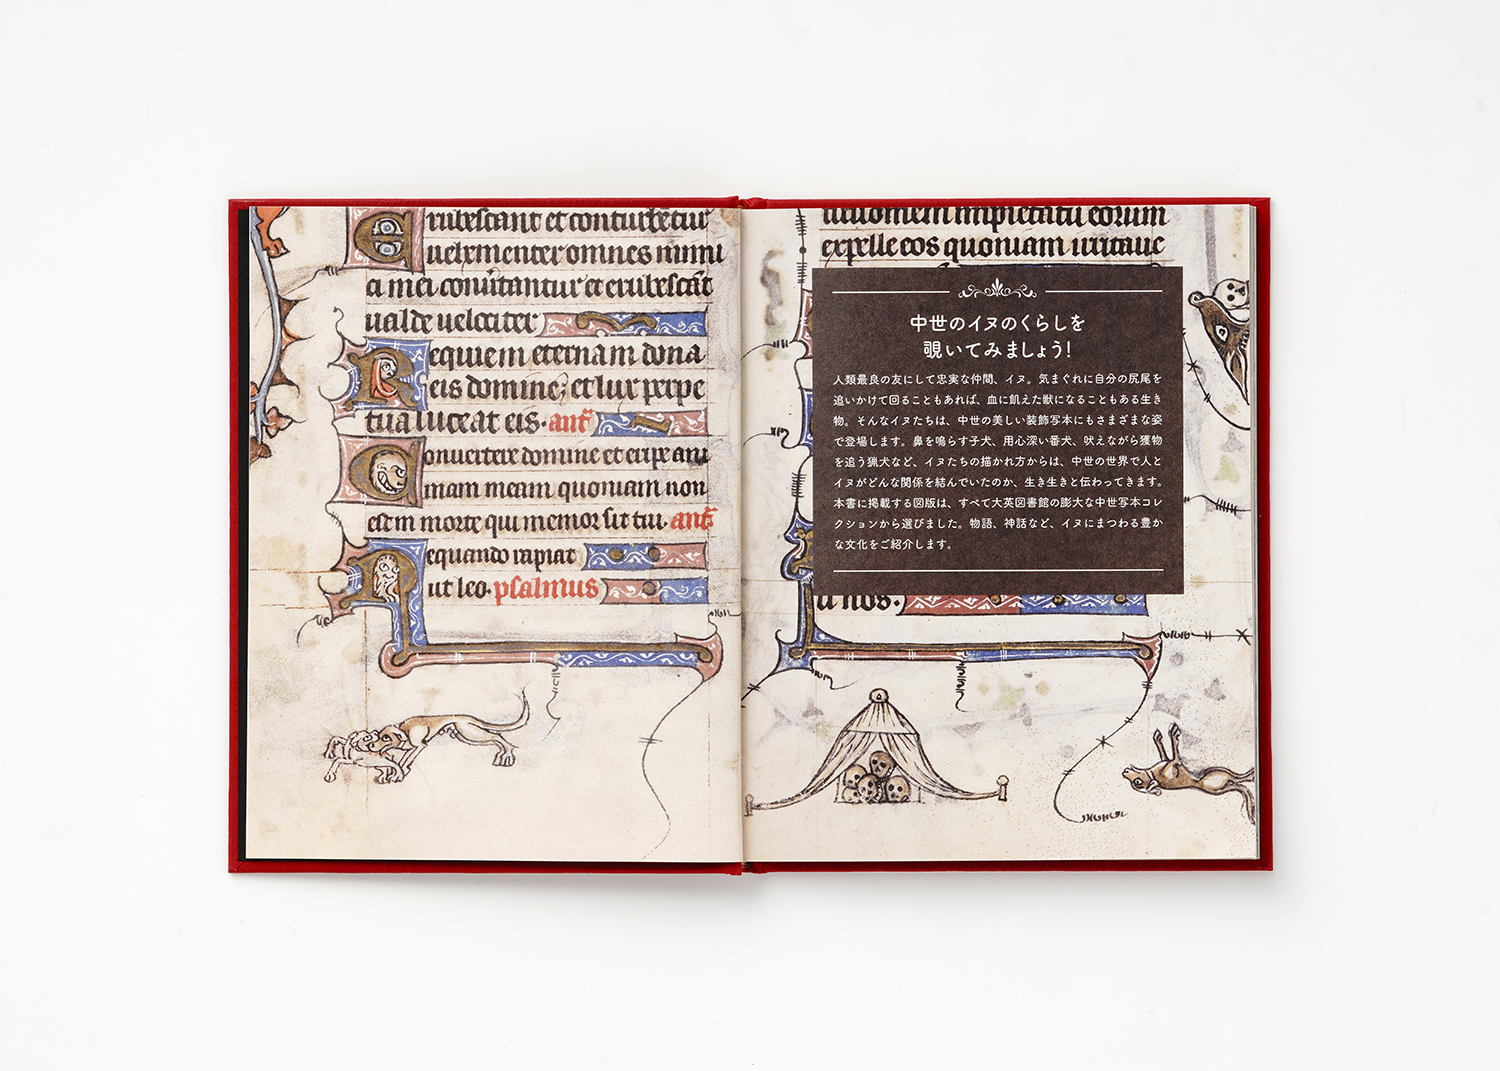 erubescant et conturbētur
vehementer omnes inimi
ci mei convertantur et erubescāt
valde velociter
Requiem eternam dona
eis domine, et lux perpe
tua luceat eis. ant
Convertere domine et eripe ani
mam meam quoniam non
est in morte qui memor sit tui. ant
equando rapiat
ut leo. psalmus
impietatū eorum
expelle eos quoniam irritave
中世のイヌのくらしを
覗いてみましょう!
人類最良の友にして忠実な仲間、イヌ。気まぐれに自分の尻尾を
追いかけて回ることもあれば、血に飢えた獣になることもある生き
物。そんなイヌたちは、中世の美しい装飾写本にもさまざまな姿
で登場します。鼻を鳴らす子犬、用心深い番犬、吠えながら獲物
を追う猟犬など、イヌたちの描かれ方からは、中世の世界で人と
イヌがどんな関係を結んでいたのか、生き生きと伝わってきます。
本書に掲載する図版は、すべて大英図書館の膨大な中世写本コレ
クションから選びました。物語、神話など、イヌにまつわる豊か
な文化をご紹介します。
nos.